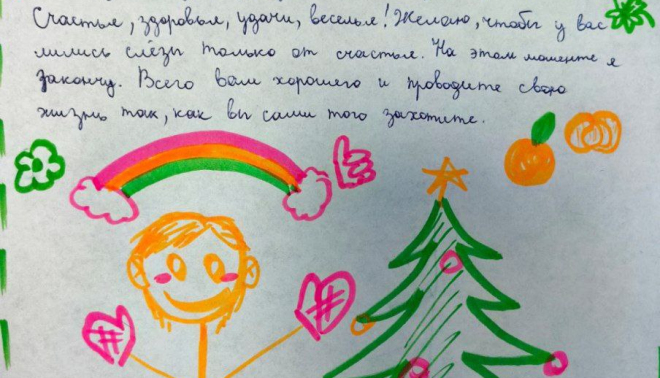 Счастья, здоровья, удачи, веселья! Желаю, чтобы у вас
лились слёзы только от счастья. На этом моменте я
закончу. Всего вам хорошего и проводите свою
жизнь так, как вы сами того захотите.